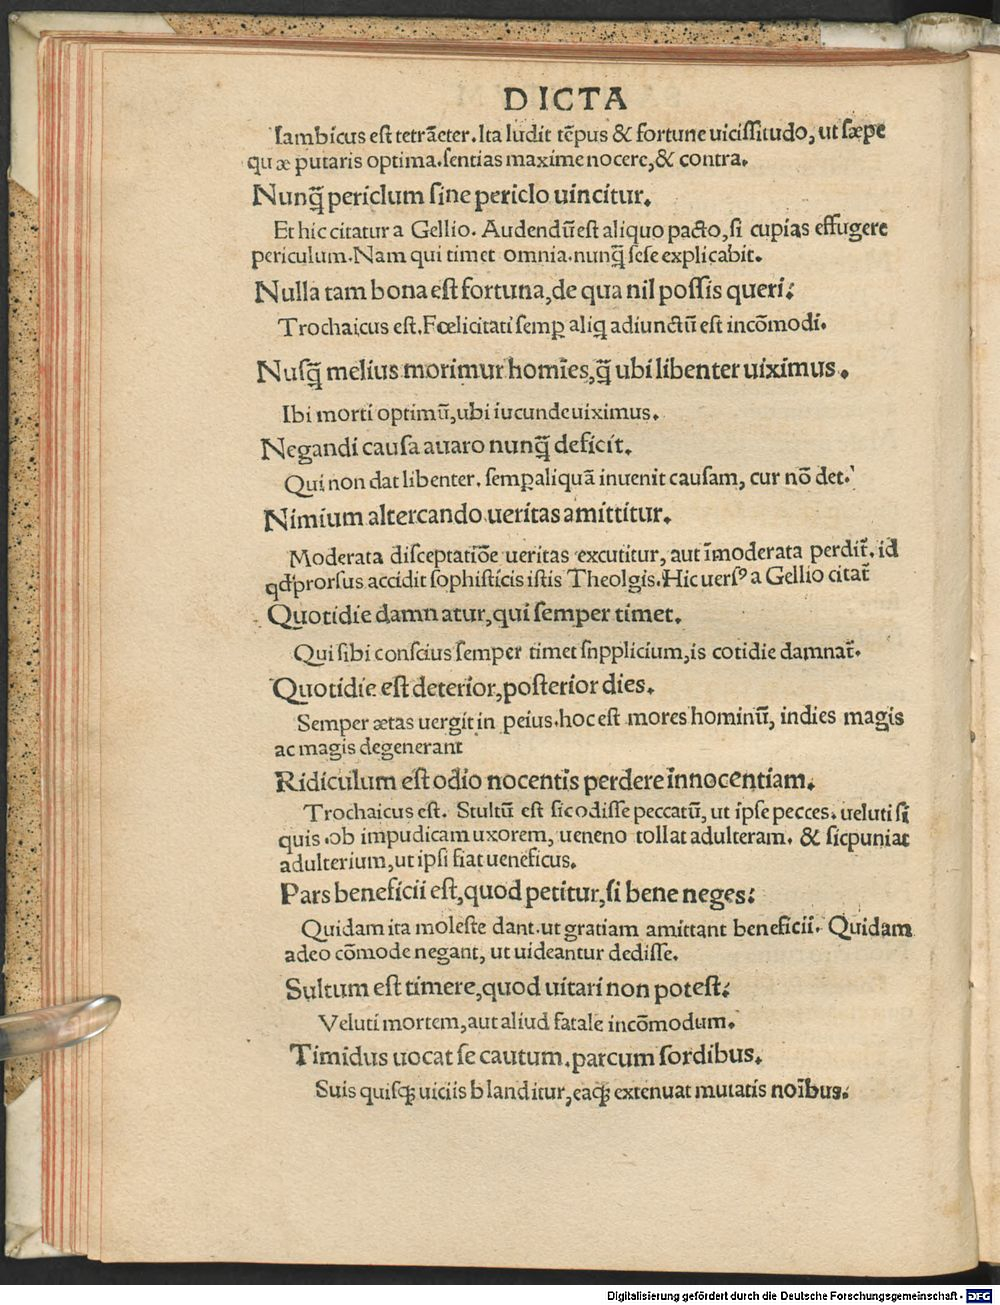 DICTA
Iambicus est tetrāeter. Ita ludit tēpus & fortune uicissitudo, ut sæpe
quæ putaris optima. sentias maxime nocere, & contra.
Nunq̄ periclum sine periclo uincitur.
Et hic citatur a Gellio. Audendū est aliquo pacto, si cupias effugere
periculum. Nam qui timet omnia. nunq̄ sese explicabit.
Nulla tam bona est fortuna, de qua nil possis queri:
Trochaicus est. Fœlicitati semꝑ aliq adiunctū est incōmodi.
Nusq̄ melius morimur homīes, q̄ ubi libenter uiximus.
Ibi morti optimū, ubi iucunde uiximus.
Negandi causa auaro nunq̄ deficit.
Qui non dat libenter. semꝑ aliquā inuenit causam, cur nō det.
Nimium altercando ueritas amittitur.
Moderata disceptatiōe ueritas excutitur, aut īmoderata perdit̄. id
qđ prorsus accidit sophisticis istis Theolgis. Hic uersꝰ a Gellio citat̄
Quotidie damnatur, qui semper timet.
Qui sibi conscius semper timet snpplicium, is cotidie damnat̄.
Quotidie est deterior, posterior dies.
Semper ætas uergit in peius. hoc est mores hominū, indies magis
ac magis degenerant
Ridiculum est odio nocentis perdere innocentiam.
Trochaicus est. Stultū est sic odisse peccatū, ut ipse pecces. ueluti si
quis ob impudicam uxorem, ueneno tollat adulteram. & sic puniat
adulterium, ut ipsi fiat ueneficus.
Pars beneficii est, quod petitur, si bene neges:
Quidam ita moleste dant. ut gratiam amittant beneficii. Quidam
adeo cōmode negant, ut uideantur dedisse.
Sultum est timere, quod uitari non potest:
Veluti mortem, aut aliud fatale incōmodum.
Timidus uocat se cautum. parcum sordibus.
Suis quisqꝫ uiciis blanditur, eaqꝫ extenuat mutatis noībus.
Digitalisierung gefördert durch die Deutsche Forschungsgemeinschaft - DFG